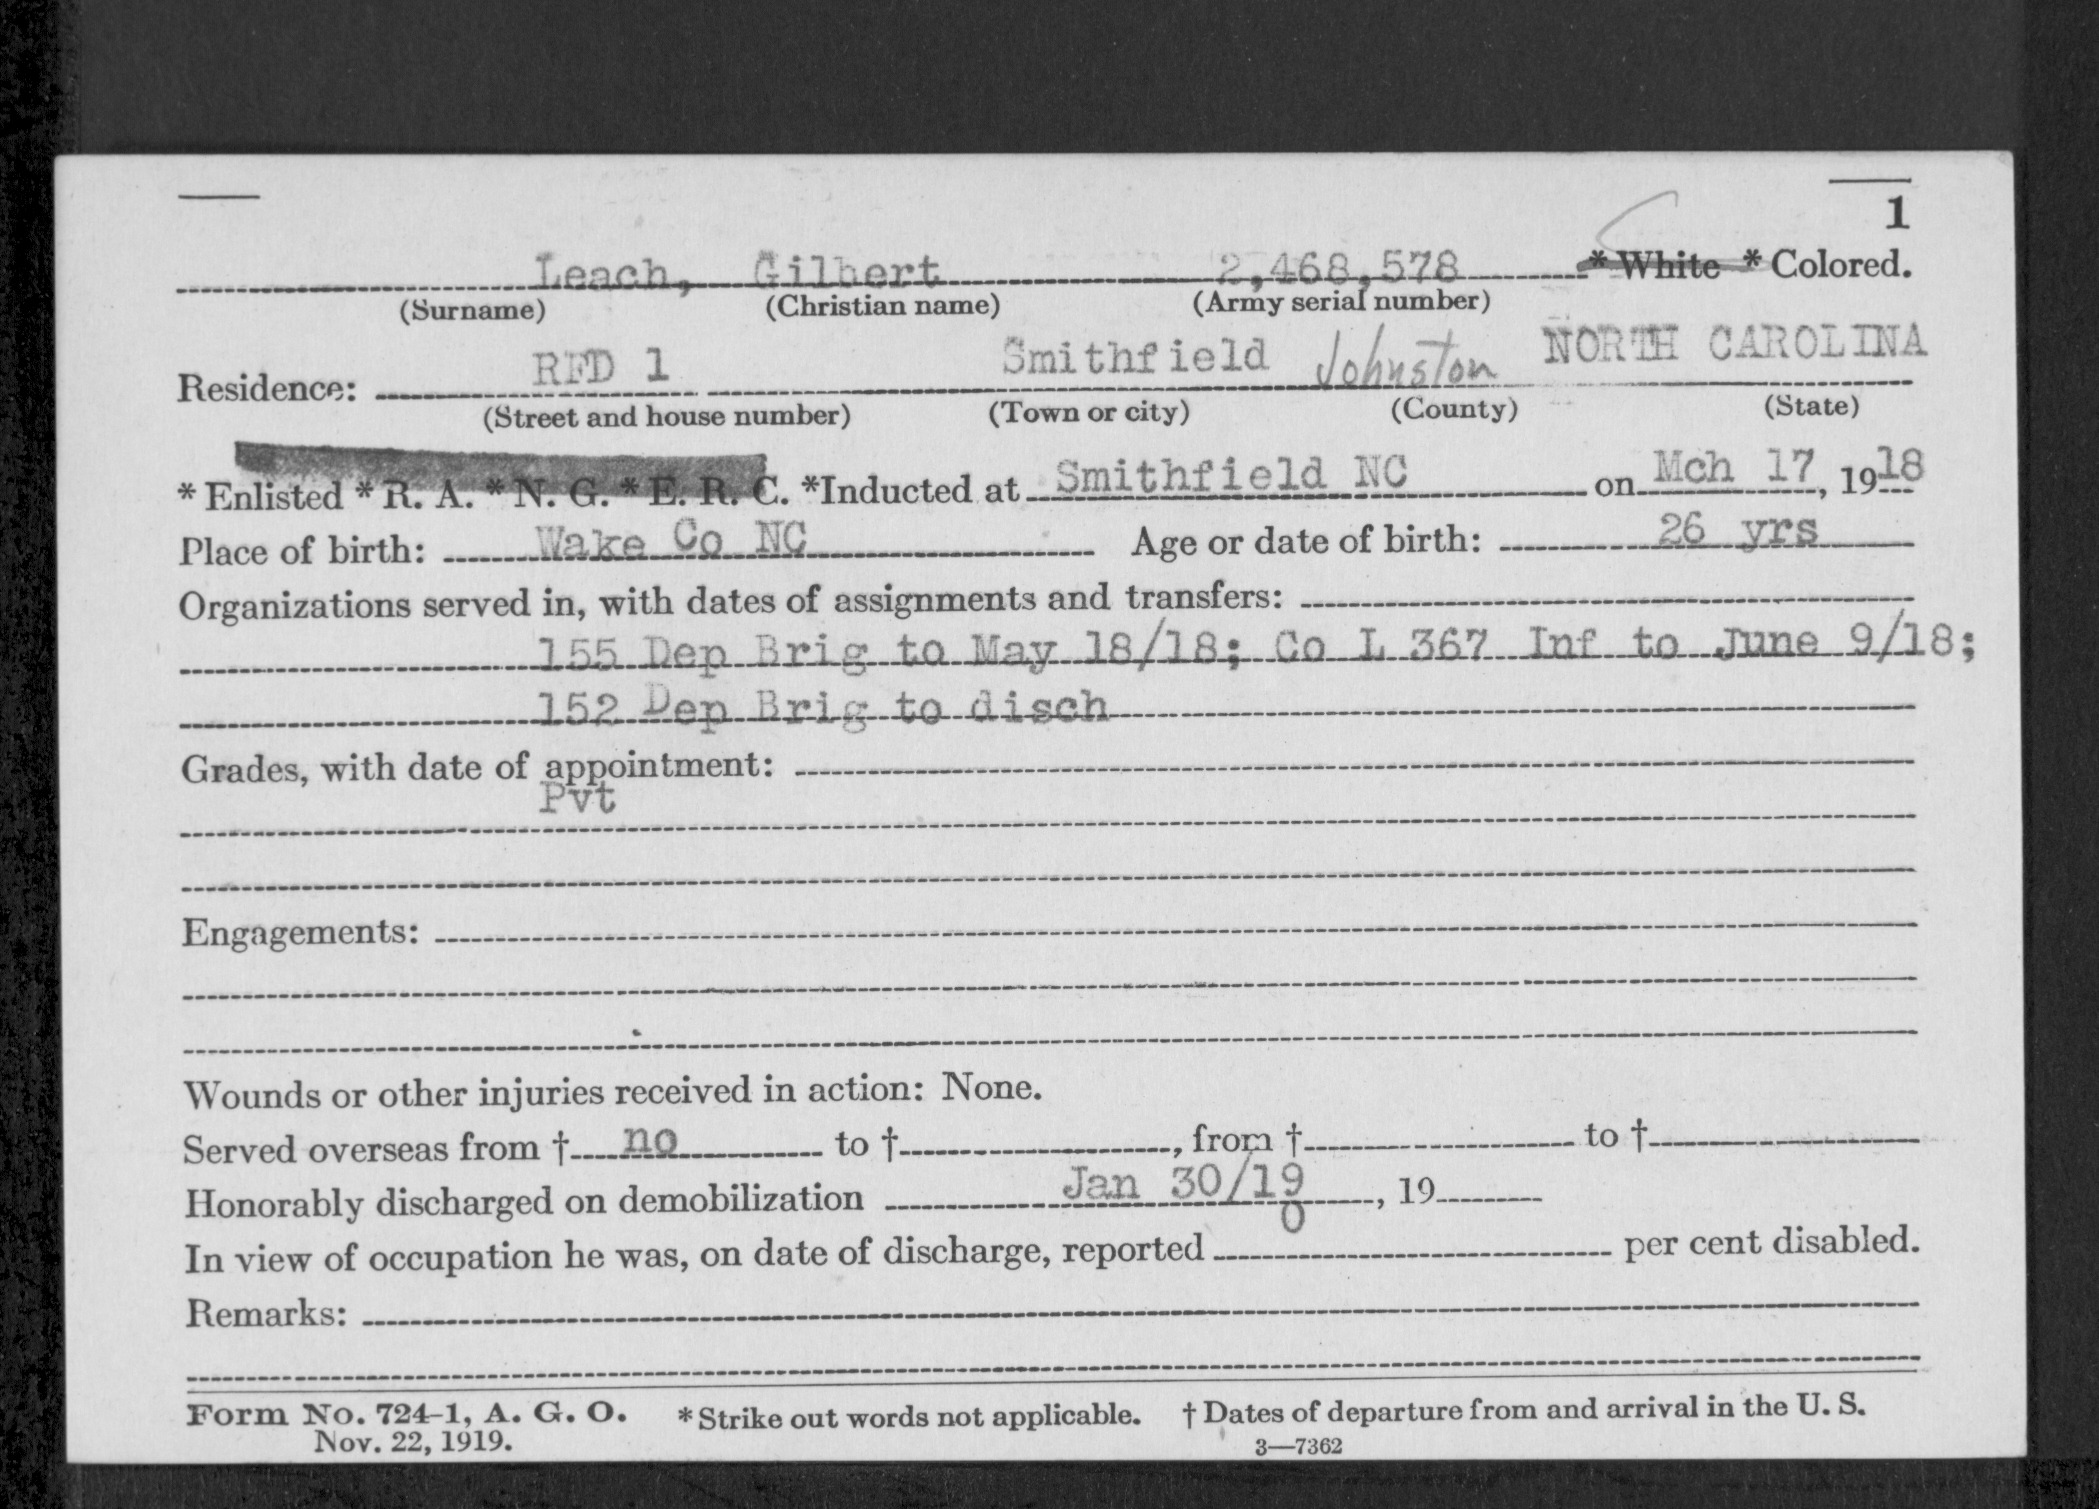 1
Leach, Gilbert 2,468,578 * White * Colored.
(Surname) (Christian name) (Army serial number)
RFD 1 Smithfield Johnston NORTH CAROLINA
Residence:
(Street and house number) (Town or city) (County) (State)
* Enlisted * R. A. * N. G. * E. R. C. *Inducted at Smithfield NC on Mch 17, 1918
Place of birth: Wake Co NC Age or date of birth: 26 yrs
Organizations served in, with dates of assignments and transfers:
155 Dep Brig to May 18/18; Co L 367 Inf to June 9/18;
152 Dep Brig to disch
Grades, with date of appointment:
Pvt
Engagements:
Wounds or other injuries received in action: None.
Served overseas from † no to †, from † to †
Honorably discharged on demobilization Jan 30/19, 19
0
In view of occupation he was, on date of discharge, reported per cent disabled.
Remarks:
Form No. 724-1, A. G. O. * Strike out words not applicable. † Dates of departure from and arrival in the U. S.
Nov. 22, 1919. 3—7362